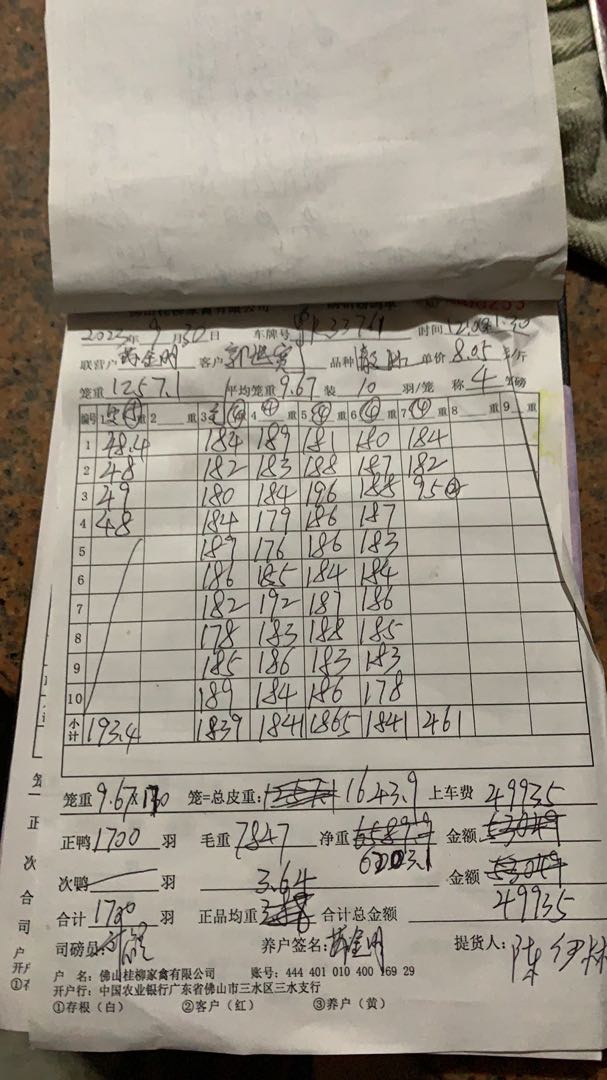 佛山桂柳家禽有限公司
2023年9月30日 车牌号 33761 时间
联营户 客户 品种 单价8.05 /斤
笼重 1257.1 平均笼重 9.67 装 10 羽/笼 称 4 笼/磅
编号 1 重 2 重 3 重 4 重 5 重 6 重 7 重 8 重 9 重
1 48.4 184 189 181 180 184
2 48 182 183 188 187 182
3 49 180 184 196 188 95②
4 48 184 179 186 187
5 189 176 186 183
6 186 185 184 184
7 182 192 187 186
8 178 183 188 185
9 185 186 183 183
10 189 184 186 178
小计 193.4 1839 1841 1865 1841 461
笼重 9.67×170 笼=总皮重: 1257.1 1643.9 上车费 49935
正鸭 1700 羽 毛重 7847 净重 6589.9 金额 53049
6203.1
次鸭 羽 3.64 金额 53049
合计 1700 羽 正品均重 合计总金额 49935
司磅员: 养户签名: 提货人:
户 名: 佛山桂柳家禽有限公司 账号: 444 401 010 400 169 29
开户行: 中国农业银行广东省佛山市三水区三水支行
①存根（白） ②客户（红） ③养户（黄）